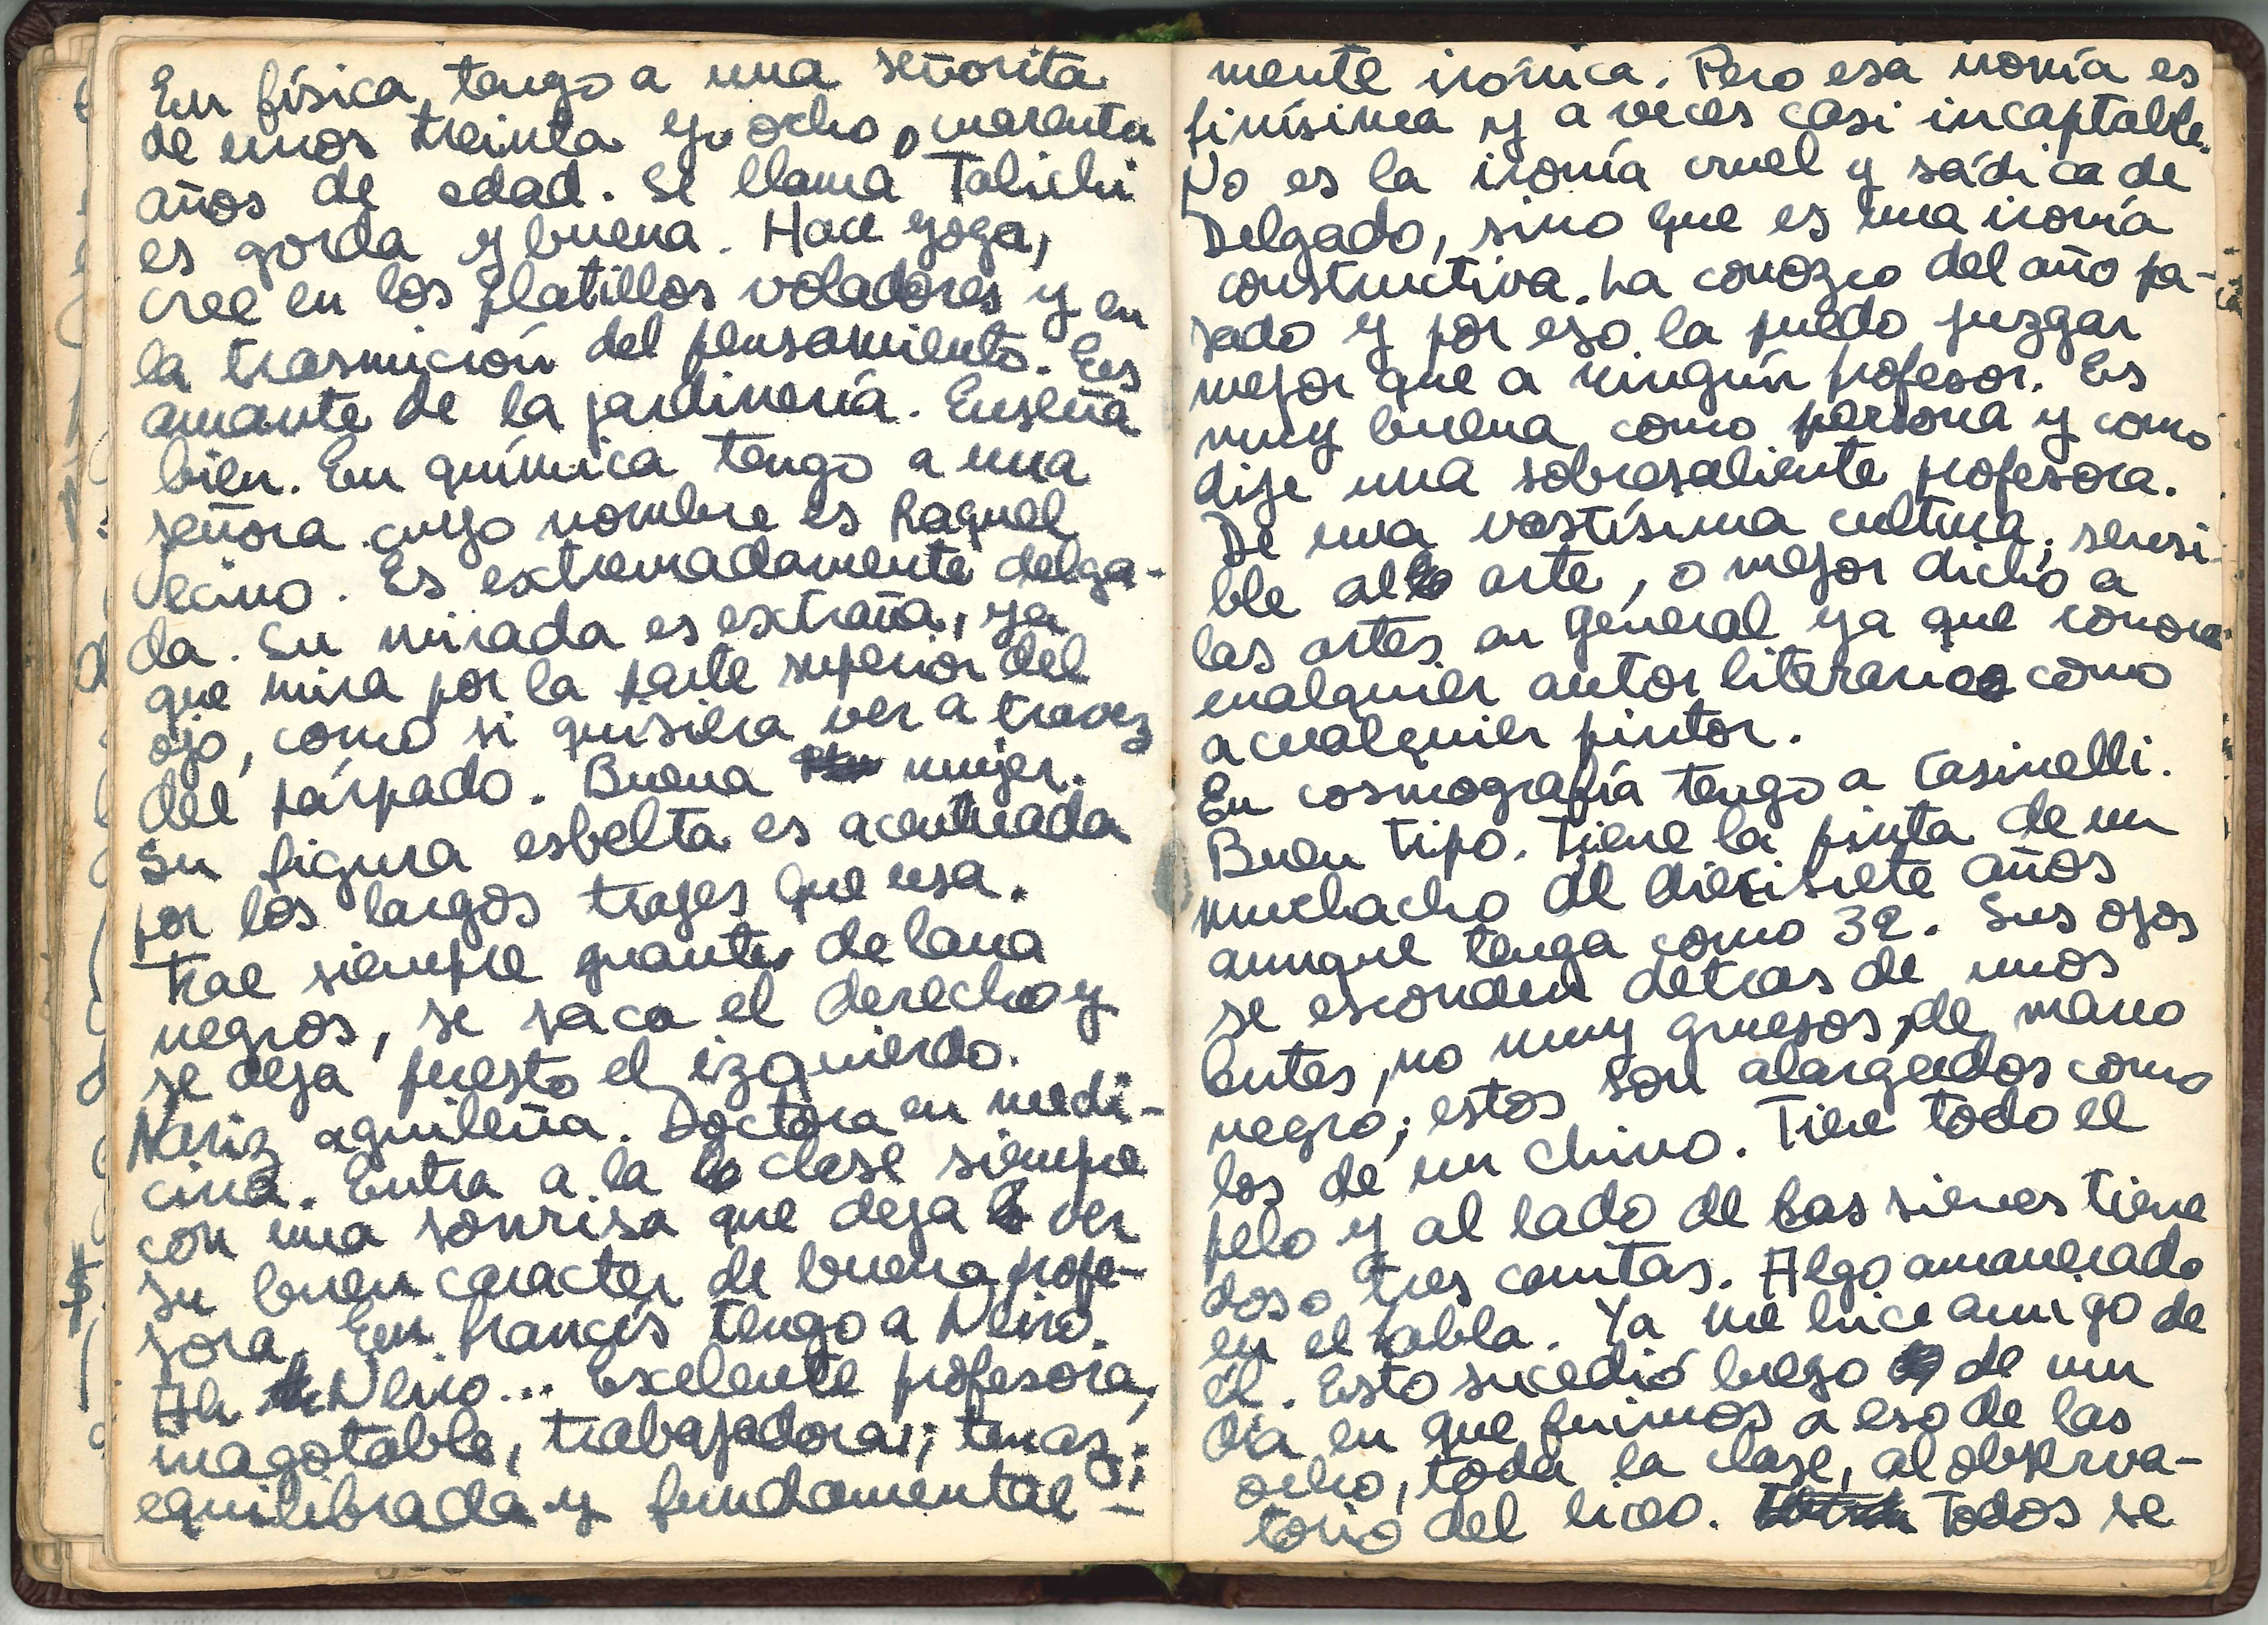 En física, tengo a una señorita
de unos treinta y ocho o cuarenta
años de edad. Se llama Talichi
es gorda y buena. Hace yoga,
cree en los platillos voladores y en
la trasmición del pensamiento. Es
amante de la jardinería. Enseña
bien. En química tengo a una
señora cuyo nombre es Raquel
Vecino. Es extremadamente delga-
da. Su mirada es extraña, ya
que mira por la parte superior del
ojo, como si quisiera ver a travez
del párpado. Buena mujer.
Su figura esbelta es acentuada
por los largos trajes que usa.
Trae siempre guantes de lana
negros, se saca el derecho y
se deja puesto el izquierdo.
Nariz aguileña. Doctora en medi-
cina. Entra a la clase siempre
con una sonrisa que deja ver
su buen caracter de buena profe-
sora. En francés tengo a Neiro.
Ah Neiro... Exelente profesora,
inagotable, trabajadora; tenaz;
equilibrada y fundamental-
mente irónica. Pero esa ironía es
finísima y a veces casi incaptable.
No es la ironía cruel y sádica de
Delgado, sino que es una ironía
constructiva. La conozco del año pa-
sado y por eso la puedo juzgar
mejor que a ningún profesor. Es
muy buena como persona y como
dije una sobresaliente profesora.
De una vastísima cultura; sensi-
ble al arte, o mejor dicho a
las artes en general ya que conoce
cualquier autor literario como
a cualquier pintor.
En cosmografía tengo a Casinelli.
Buen tipo. Tiene la pinta de un
muchacho de diecisiete años
aunque tenga como 32. Sus ojos
se esconden detras de unos
lentes, no muy gruesos, de marco
negro; estos son alargados como
los de un chino. Tiene todo el
pelo y al lado de las sienes tiene
dos o tres canitas. Algo amanerado
en el habla. Ya me hice amigo de
él. Esto sucedió luego de un
día en que fuimos a eso de las
ocho, toda la clase, al observa-
torio del liceo. Todos se